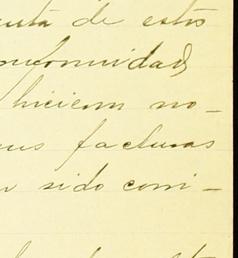 uta de estos
nformidad
hicieron no-
us facturas
n sido comi-